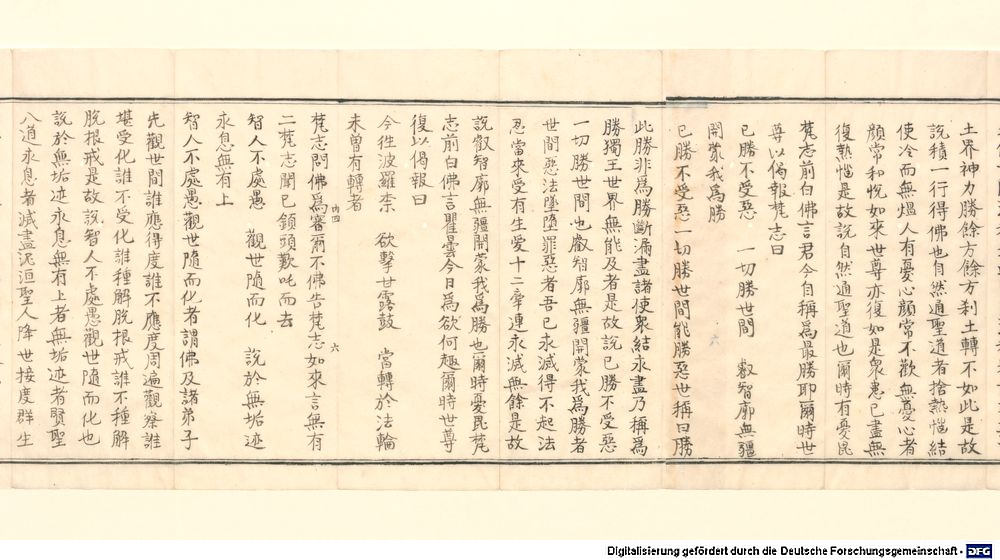 土界神力勝餘方餘方刹土轉不如此是故
說積一行得佛也自然通聖道者捨熱惱結
使冷而無熅人有憂心顏常不歡無憂心者
顏常和悅如來世尊亦復如是衆患已盡無
復熱惱是故說自然通聖道也爾時有憂毘
梵志前白佛言君今自稱爲最勝耶爾時世
尊以偈報梵志曰
已勝不受惡 一切勝世間 叡智廓無疆
開蒙我爲勝
已勝不受惡一切勝世間能勝惡世稱曰勝
此勝非爲勝斷漏盡諸使衆結永盡乃稱爲
勝獨王世界無能及者是故說已勝不受惡
一切勝世間也叡智廓無疆開蒙我爲勝者
世間惡法墜墮罪惡者吾已永滅得不起法
忍當來受有生愛十二牽連永滅無餘是故
說叡智廓無疆開蒙我爲勝也爾時憂毘梵
志前白佛言瞿曇今日爲欲何趣爾時世尊
復以偈報曰
今往波羅柰 欲擊甘露鼓 當轉於法輪
未曾有轉者
梵志問佛爲審爾不佛告梵志如來言無有
二梵志聞已頷頭歎吒而去
智人不處愚 觀世隨而化 說於無垢迹
永息無有上
智人不處愚觀世隨而化者謂佛及諸弟子
先觀世間誰應得度誰不應度周遍觀察誰
堪受化誰不受化誰種解脫根戒誰不種解
脫根戒是故說智人不處愚觀世隨而化也
說於無垢迹永息無有上者無垢迹者賢聖
八道永息者滅盡泥洹聖人降世接度群生
Digitalisierung gefördert durch die Deutsche Forschungsgemeinschaft - DFG